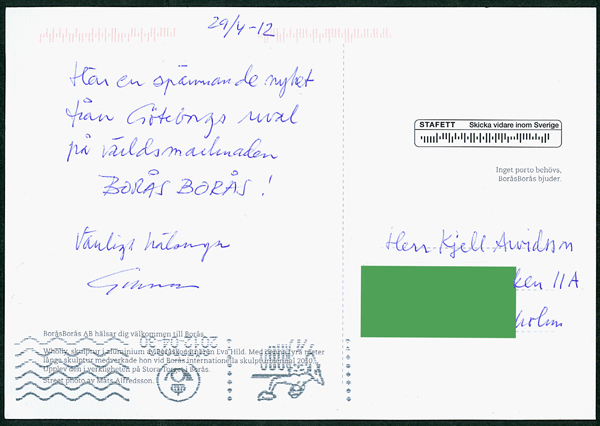 29/4-12
Har en spännande nyhet
från Göteborgs rival
på världsmarknaden
BORÅS BORÅS!
Vänliga hälsningar
STAFETT Skicka vidare inom Sverige
Inget porto behövs,
BoråsBorås bjuder.
Herr Kjell Arvidsson
ken 11A
holm
BoråsBorås AB hälsar dig välkommen till Borås.
2012-04-30
Wholly, skulptur i aluminium av Eva Hild. Med denna fyra meter
långa skulptur medverkade hon vid Borås internationella skulpturbiennal 2010.
Upplev den i verkligheten på Stora Torget i Borås.
Street photo av Mats Alfredsson.